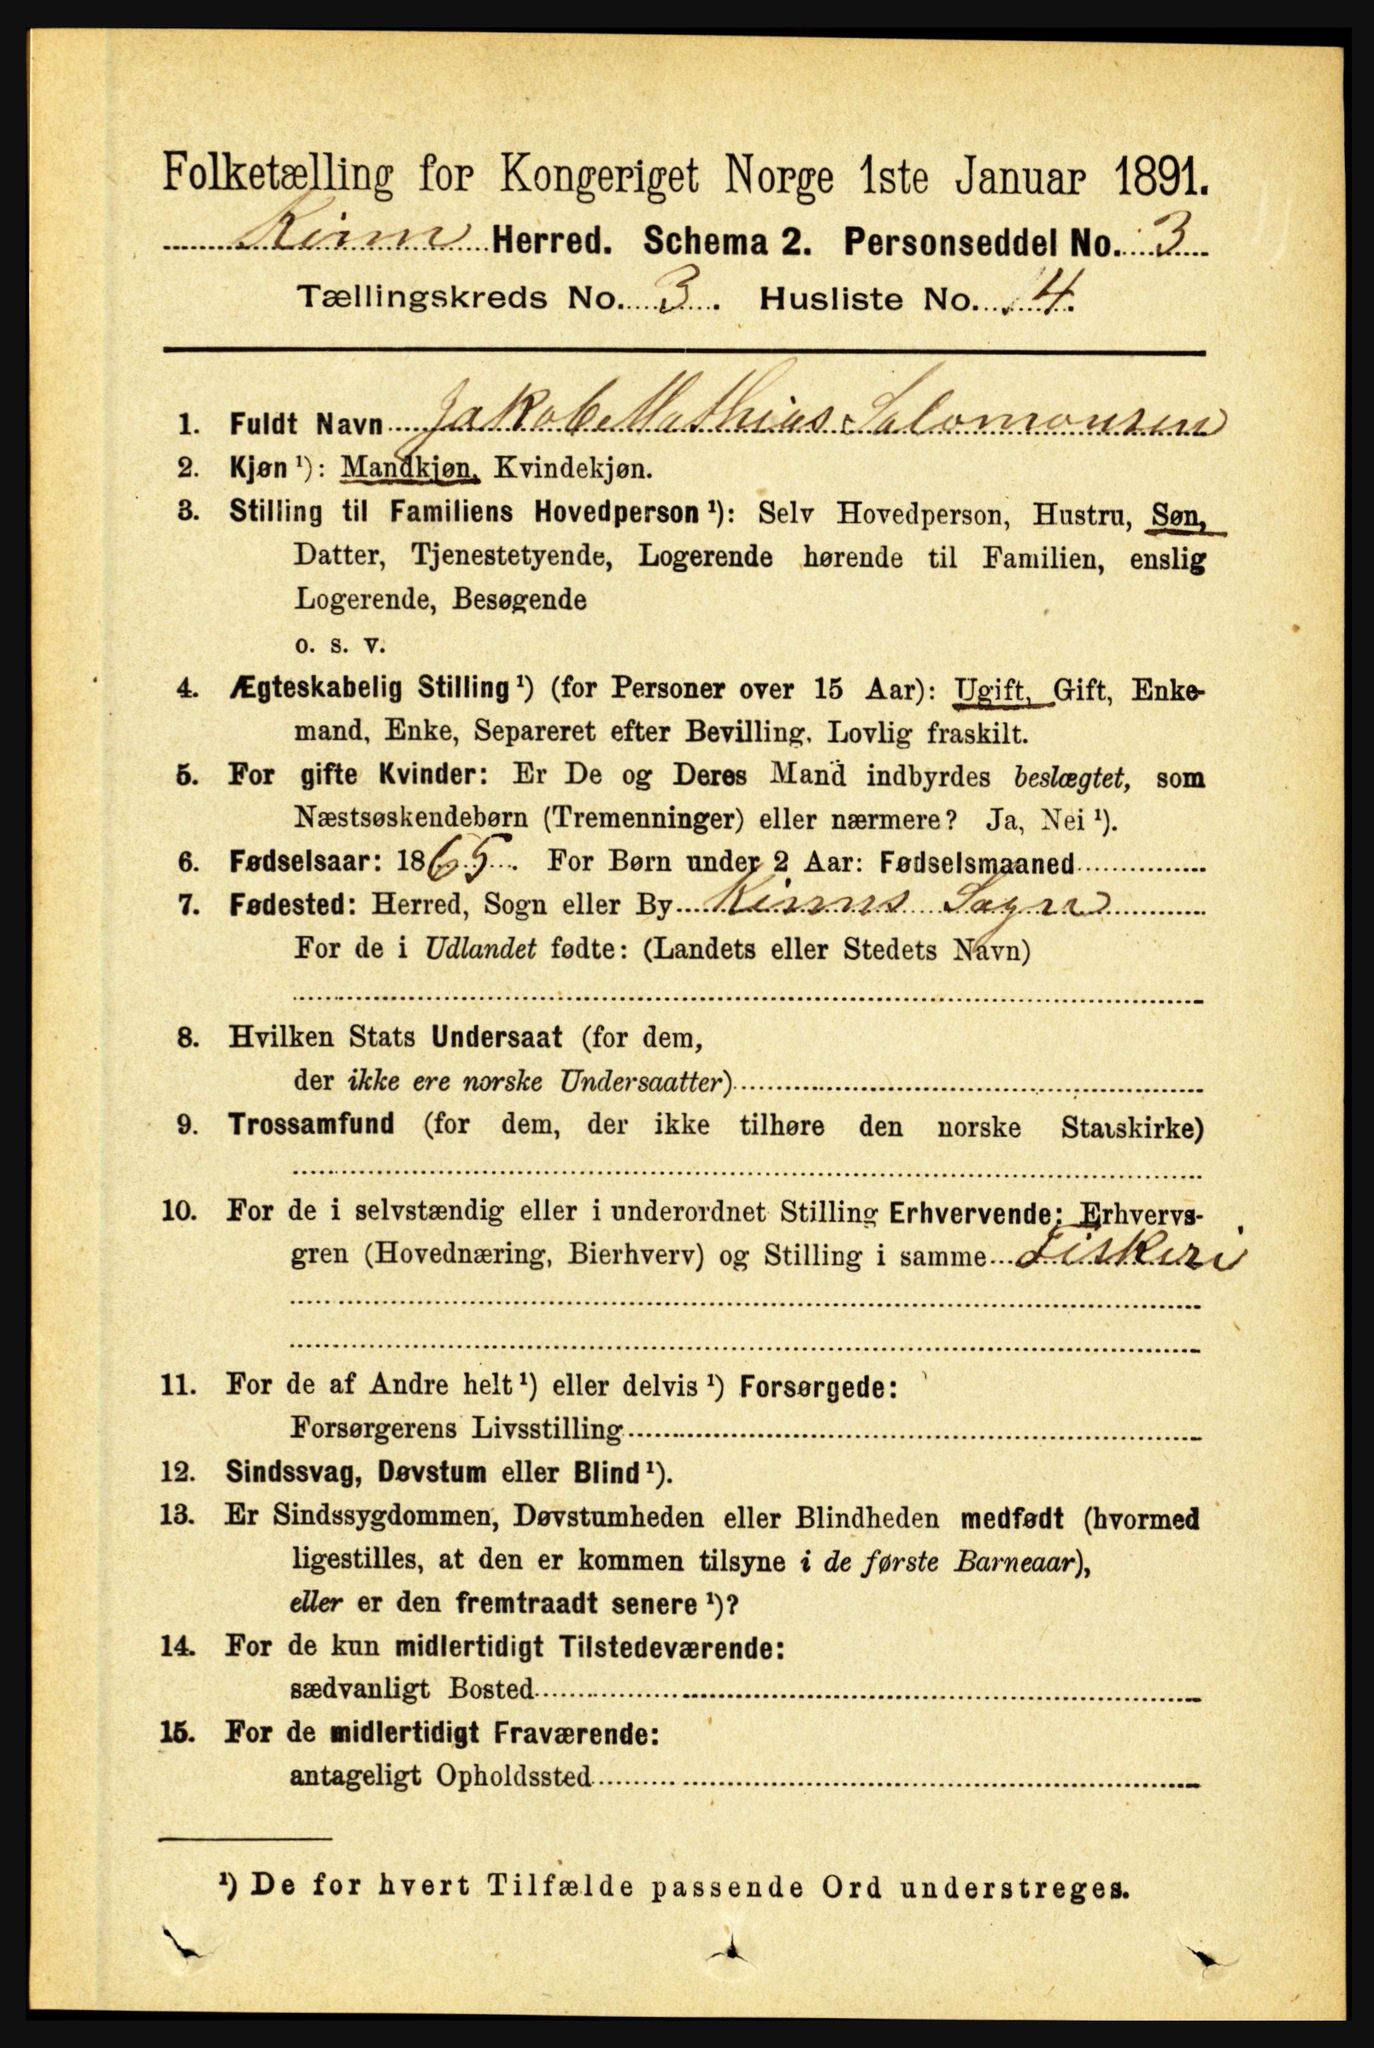 Folketælling for Kongeriget Norge 1ste Januar 1891.
Kinn Herred. Schema 2. Personseddel No. 3
Tællingskreds No. 3. Husliste No. 14.
1. Fuldt Navn Jakob Mathias Salomonsen
2. Kjøn ¹): Mandkjøn, Kvindekjøn.
3. Stilling til Familiens Hovedperson ¹): Selv Hovedperson, Hustru, Søn,
Datter, Tjenestetyende, Logerende hørende til Familien, enslig
Logerende, Besøgende
o. s. v.
4. Ægteskabelig Stilling ¹) (for Personer over 15 Aar): Ugift, Gift, Enke-
mand, Enke, Separeret efter Bevilling, Lovlig fraskilt.
5. For gifte Kvinder: Er De og Deres Mand indbyrdes beslægtet, som
Næstsøskendebørn (Tremenninger) eller nærmere? Ja, Nei ¹).
6. Fødselsaar: 1865. For Børn under 2 Aar: Fødselsmaaned
7. Fødested: Herred, Sogn eller By Kinns Sogn
For de i Udlandet fødte: (Landets eller Stedets Navn)
8. Hvilken Stats Undersaat (for dem,
der ikke ere norske Undersaatter)
9. Trossamfund (for dem, der ikke tilhøre den norske Statskirke)
10. For de i selvstændig eller i underordnet Stilling Erhvervende: Erhvervs-
gren (Hovednæring, Bierhverv) og Stilling i samme Fiskeri
11. For de af Andre helt ¹) eller delvis ¹) Forsørgede:
Forsørgerens Livsstilling
12. Sindssvag, Døvstum eller Blind ¹).
13. Er Sindssygdommen, Døvstumheden eller Blindheden medfødt (hvormed
ligestilles, at den er kommen tilsyne i de første Barneaar),
eller er den fremtraadt senere ¹)?
14. For de kun midlertidigt Tilstedeværende:
sædvanligt Bosted
15. For de midlertidigt Fraværende:
antageligt Opholdssted
¹) De for hvert Tilfælde passende Ord understreges.